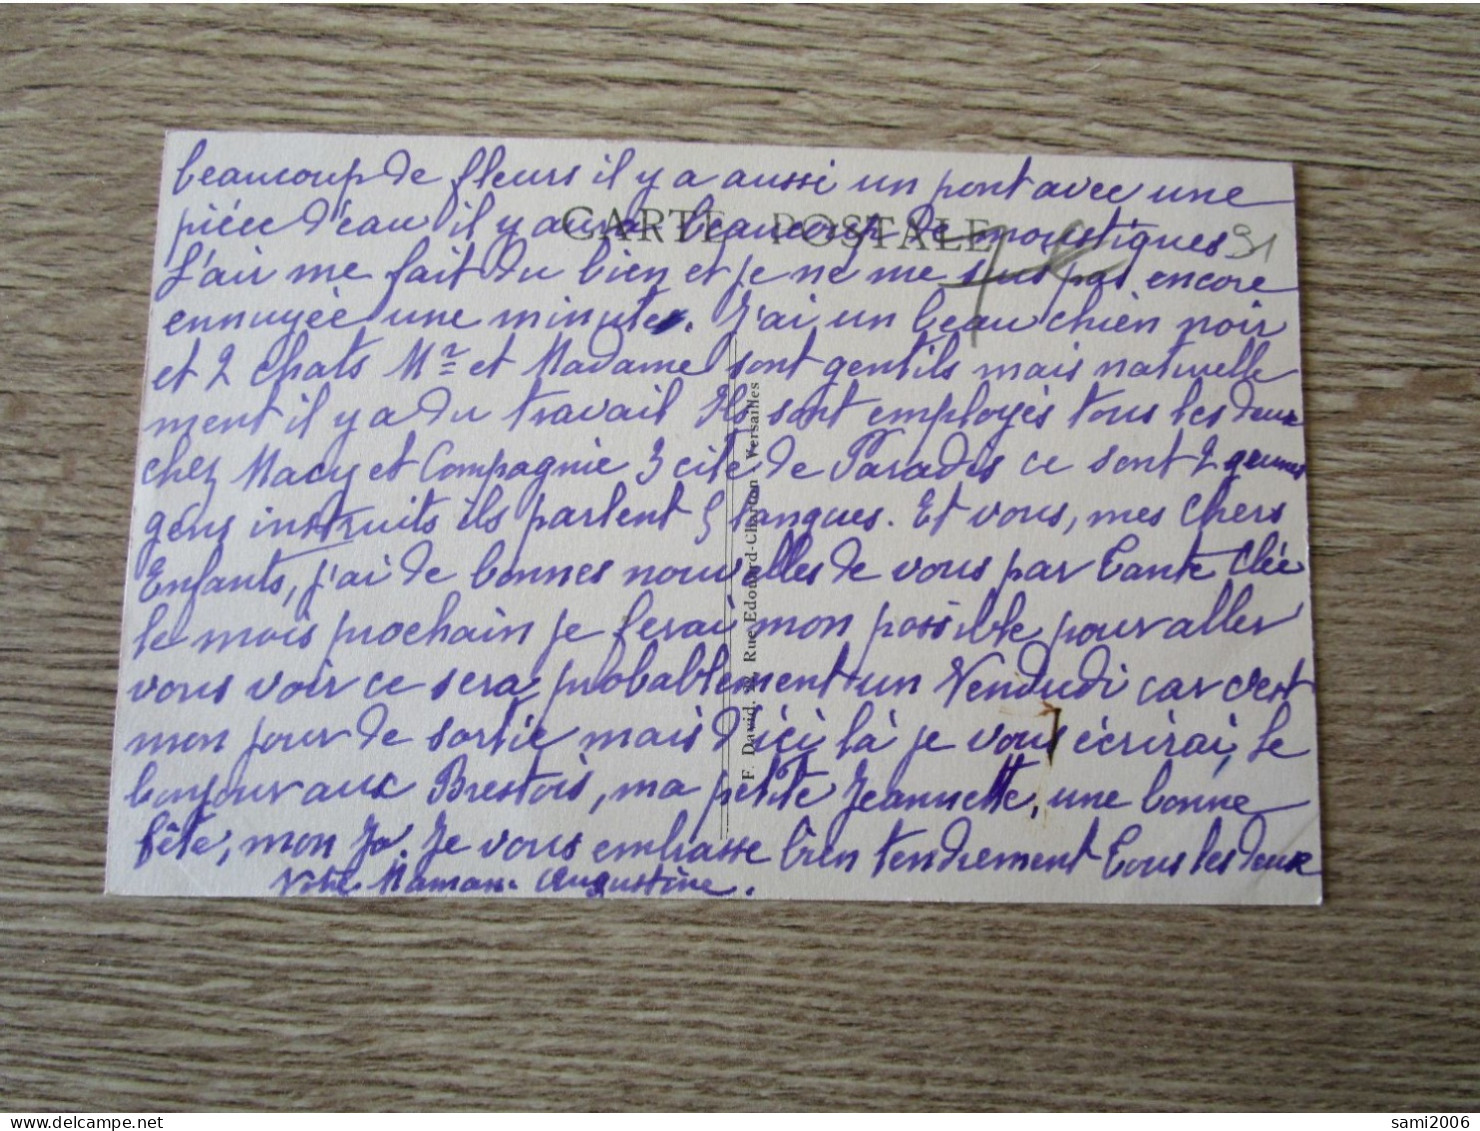 beaucoup de fleurs il y a aussi un pont avec une
pièce d'eau il y aura beaucoup de moustiques
CARTE POSTALE
91
L'air me fait du bien et je ne me suis pas encore
ennuyée une minute. J'ai un beau chien noir
et 2 chats Mr et Madame sont gentils mais naturelle
ment il y a du travail Ils sont employés tous les deux
chez Macy et Compagnie 3 cité de Paradis ce sont 2 jeunes
gens instruits ils parlent 5 langues. Et vous, mes Chers
Enfants, j'ai de bonnes nouvelles de vous par Tante Clée
le mois prochain je ferai mon possible pour aller
vous voir ce sera probablement un Vendredi car c'est
mon jour de sortie mais d'ici là je vous écrirai, le
bonjour aux Brestois, ma petite Jeannette, une bonne
fête, mon Jo. Je vous embrasse bien tendrement Tous les deux
Votre Maman. Augustine.
F. David, Rue Edouard-Charton Versailles
sami2006